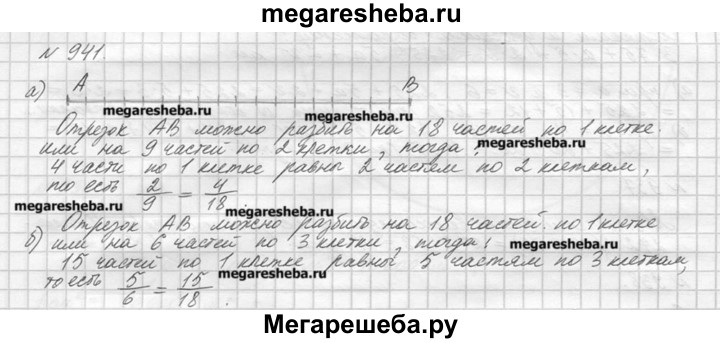 megaresheba.ru
№ 941.
а) A B
megaresheba.ru megaresheba.ru
Отрезок AB можно разбить на 18 частей по 1 клетке.
или на 9 частей по 2 клетки, тогда: megaresheba.ru
4 части по 1 клетке равны 2 частям по 2 клеткам,
то есть 2/9 = 4/18.
megaresheba.ru megaresheba.ru
Отрезок AB можно разбить на 18 частей по 1 клетке
б) или на 6 частей по 3 клетки, тогда: megaresheba.ru
15 частей по 1 клетке равны 5 частям по 3 клеткам,
то есть 5/6 = 15/18. megaresheba.ru
Мегарешеба.ру